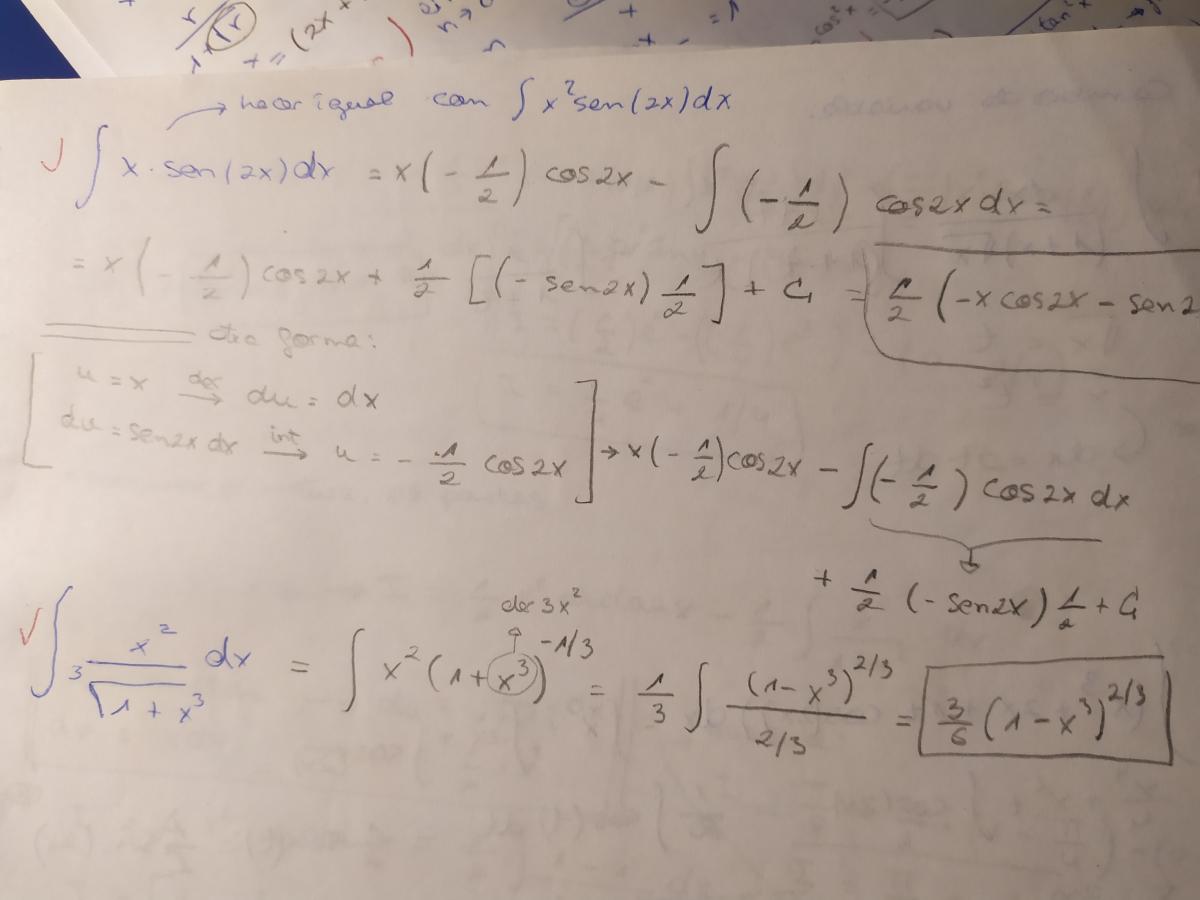 → hacer igual con ∫ x² sen(2x) dx
✓ ∫ x · sen(2x) dx = x(-1/2) cos2x - ∫ (-1/2) cos2x dx =
= x (-1/2) cos2x + 1/2 [(-sen2x) 1/2] + C₁ = 1/2 (-x cos2x - sen2
otra forma:
[ u = x der→ du = dx
dv = sen2x dx int→ u = - 1/2 cos2x ] → x(-1/2) cos2x - ∫(-1/2) cos2x dx
+ 1/2 (-sen2x) 1/2 + C₁
der 3x²
✓ ∫ x²/∛(1 + x³) dx = ∫ x² (1 + x³)^(-1/3) = 1/3 ∫ (1 - x³)^(2/3) / (2/3) = 3/6 (1 - x³)^(2/3)